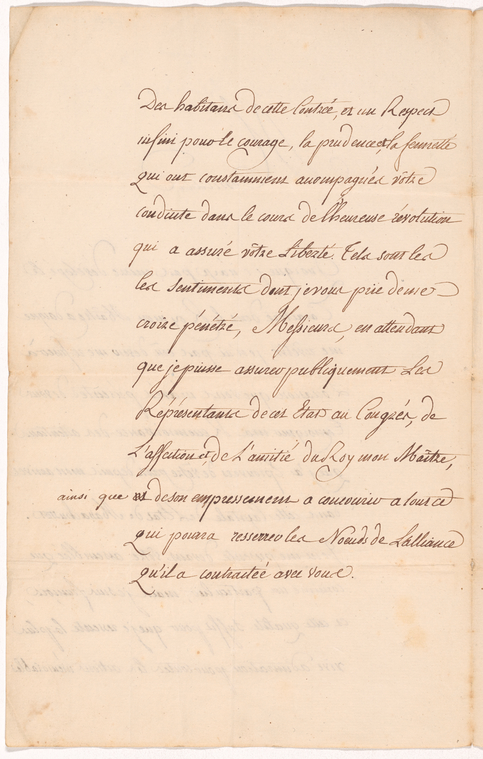 Des habitans de cette Contrée, et un Respect
infini pour le courage, la prudence et la fermetté
qui ont constamment accompagnés vôtre
conduite dans le cours de l'heureuse révolution
qui a assuré vôtre Liberté. Tels sont les
les Sentiments dont je vous prie de me
croire pénétré, Messieurs, en attendant
que je puisse assurer publiquement Les
Réprésentants de ces Etats au Congrés, de
L'affection et de L'amitié du Roy mon Maître,
ainsi que de son empressement a concourir a tout ce
qui pourra resserrer les Noeuds de Lalliance
qu'il a contractée avec vous.